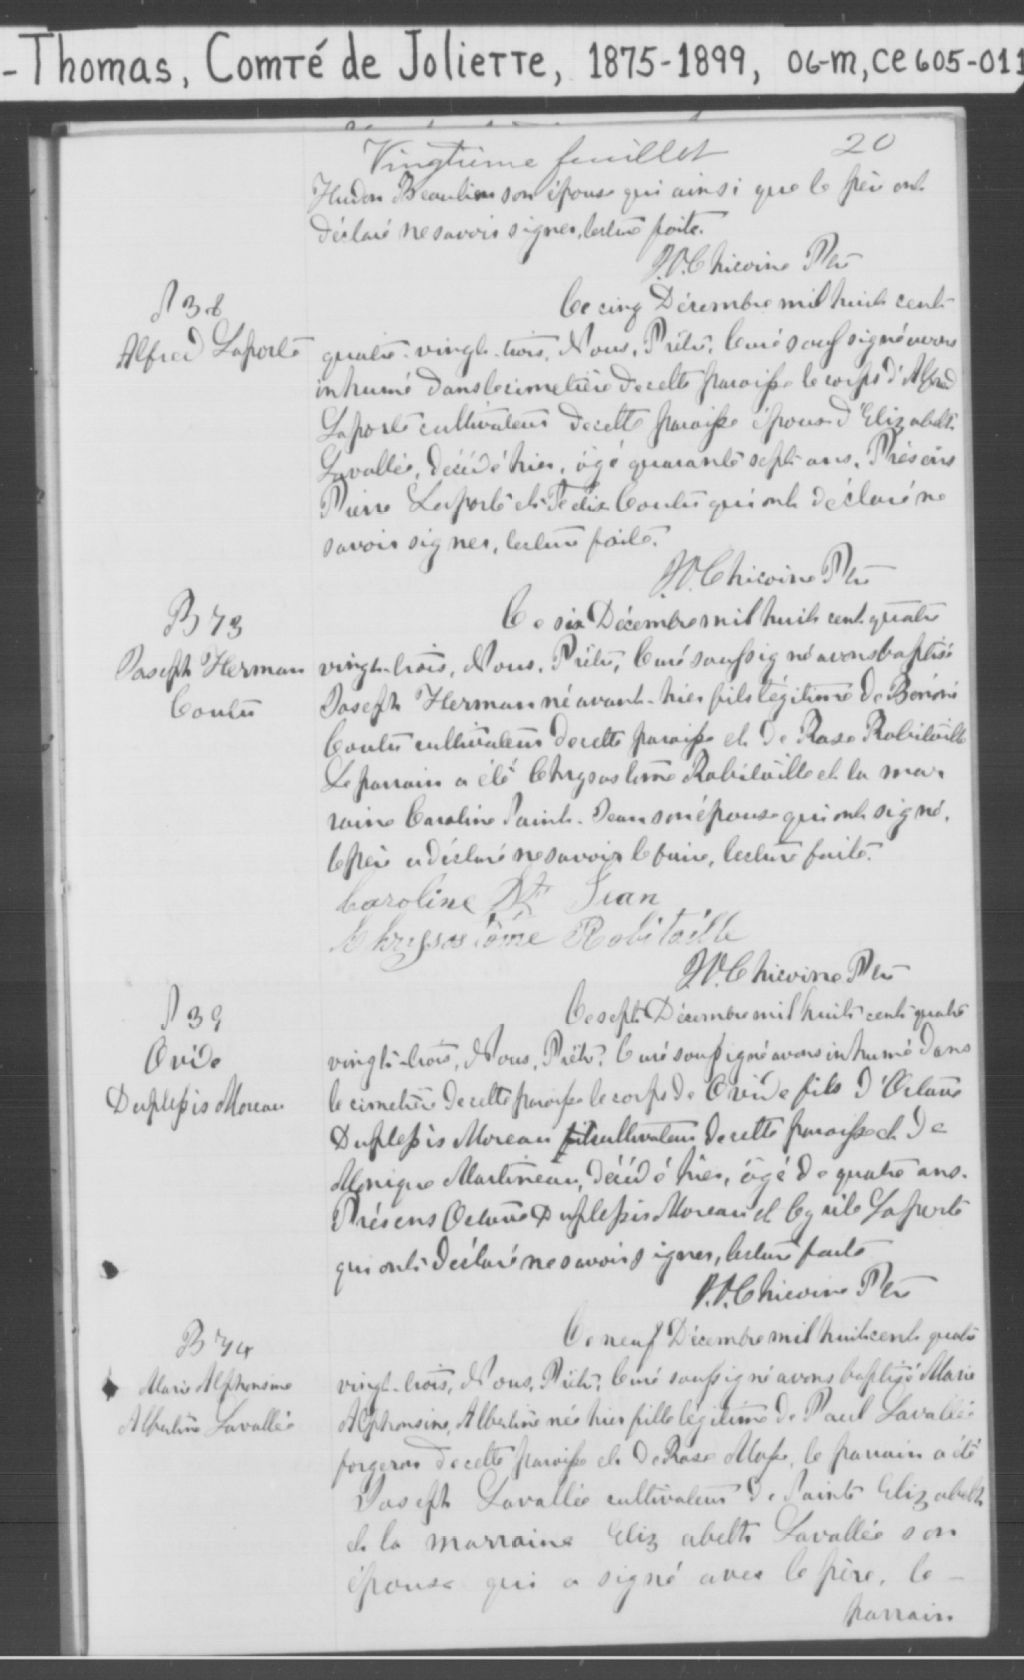 -Thomas, Comté de Joliette, 1875-1899, 06-M, CE605-011
Vingtième feuillet 20
Hudon Beaulieu son épouse qui ainsi que le père ont
déclaré ne savoir signer, lecture faite.
Chicoine Ptre
S 38
Alfred Laporte
Ce cinq Décembre mil huit cent
quatre-vingt-trois, Nous, Prêtre, Curé soussigné avons
inhumé dans le cimetière de cette paroisse le corps d'Alfred
Laporte cultivateur de cette paroisse époux d'Elizabeth
Lavallée, décédé hier, âgé quarante sept ans. Présens
Pierre Laporte et Félix Coutu qui ont déclaré ne
savoir signer, lecture faite.
Chicoine Ptre
B 73
Joseph Herman
Coutu
Ce six Décembre mil huit cent quatre
vingt-trois, Nous, Prêtre, Curé soussigné avons baptisé
Joseph Herman né avant-hier fils légitime de
Coutu cultivateur de cette paroisse et de Rose Robitaille
Le parrain a été Chrysostôme Robitaille et la mar
raine Caroline Saint-Jean son épouse qui ont signé,
le père a déclaré ne savoir le faire, lecture faite.
Caroline St Jean
Chrysostôme Robitaille
Chicoine Ptre
S 39
Ovide
Duplessis Moreau
Ce sept Décembre mil huit cent quatre
vingt-trois, Nous, Prêtre, Curé soussigné avons inhumé dans
le cimetière de cette paroisse le corps de Ovide fils d'Octave
Duplessis Moreau cultivateur de cette paroisse et de
Monique Martineau, décédé hier, âgé de quatre ans.
Présens Octave Duplessis Moreau et Cyrile Laporte
qui ont déclaré ne savoir signer, lecture faite
Chicoine Ptre
B 74
Marie Alphonsine
Albertine Lavallée
Ce neuf Décembre mil huit cent quatre
vingt-trois, Nous, Prêtre, Curé soussigné avons baptisé Marie
Alphonsine, Albertine née hier fille légitime de Paul Lavallée
forgeron de cette paroisse et de Rose Masse, le parrain a été
Joseph Lavallée cultivateur de Sainte Elizabeth
et la marraine Elizabeth Lavallée son
épouse qui a signé avec le père, le
parrain